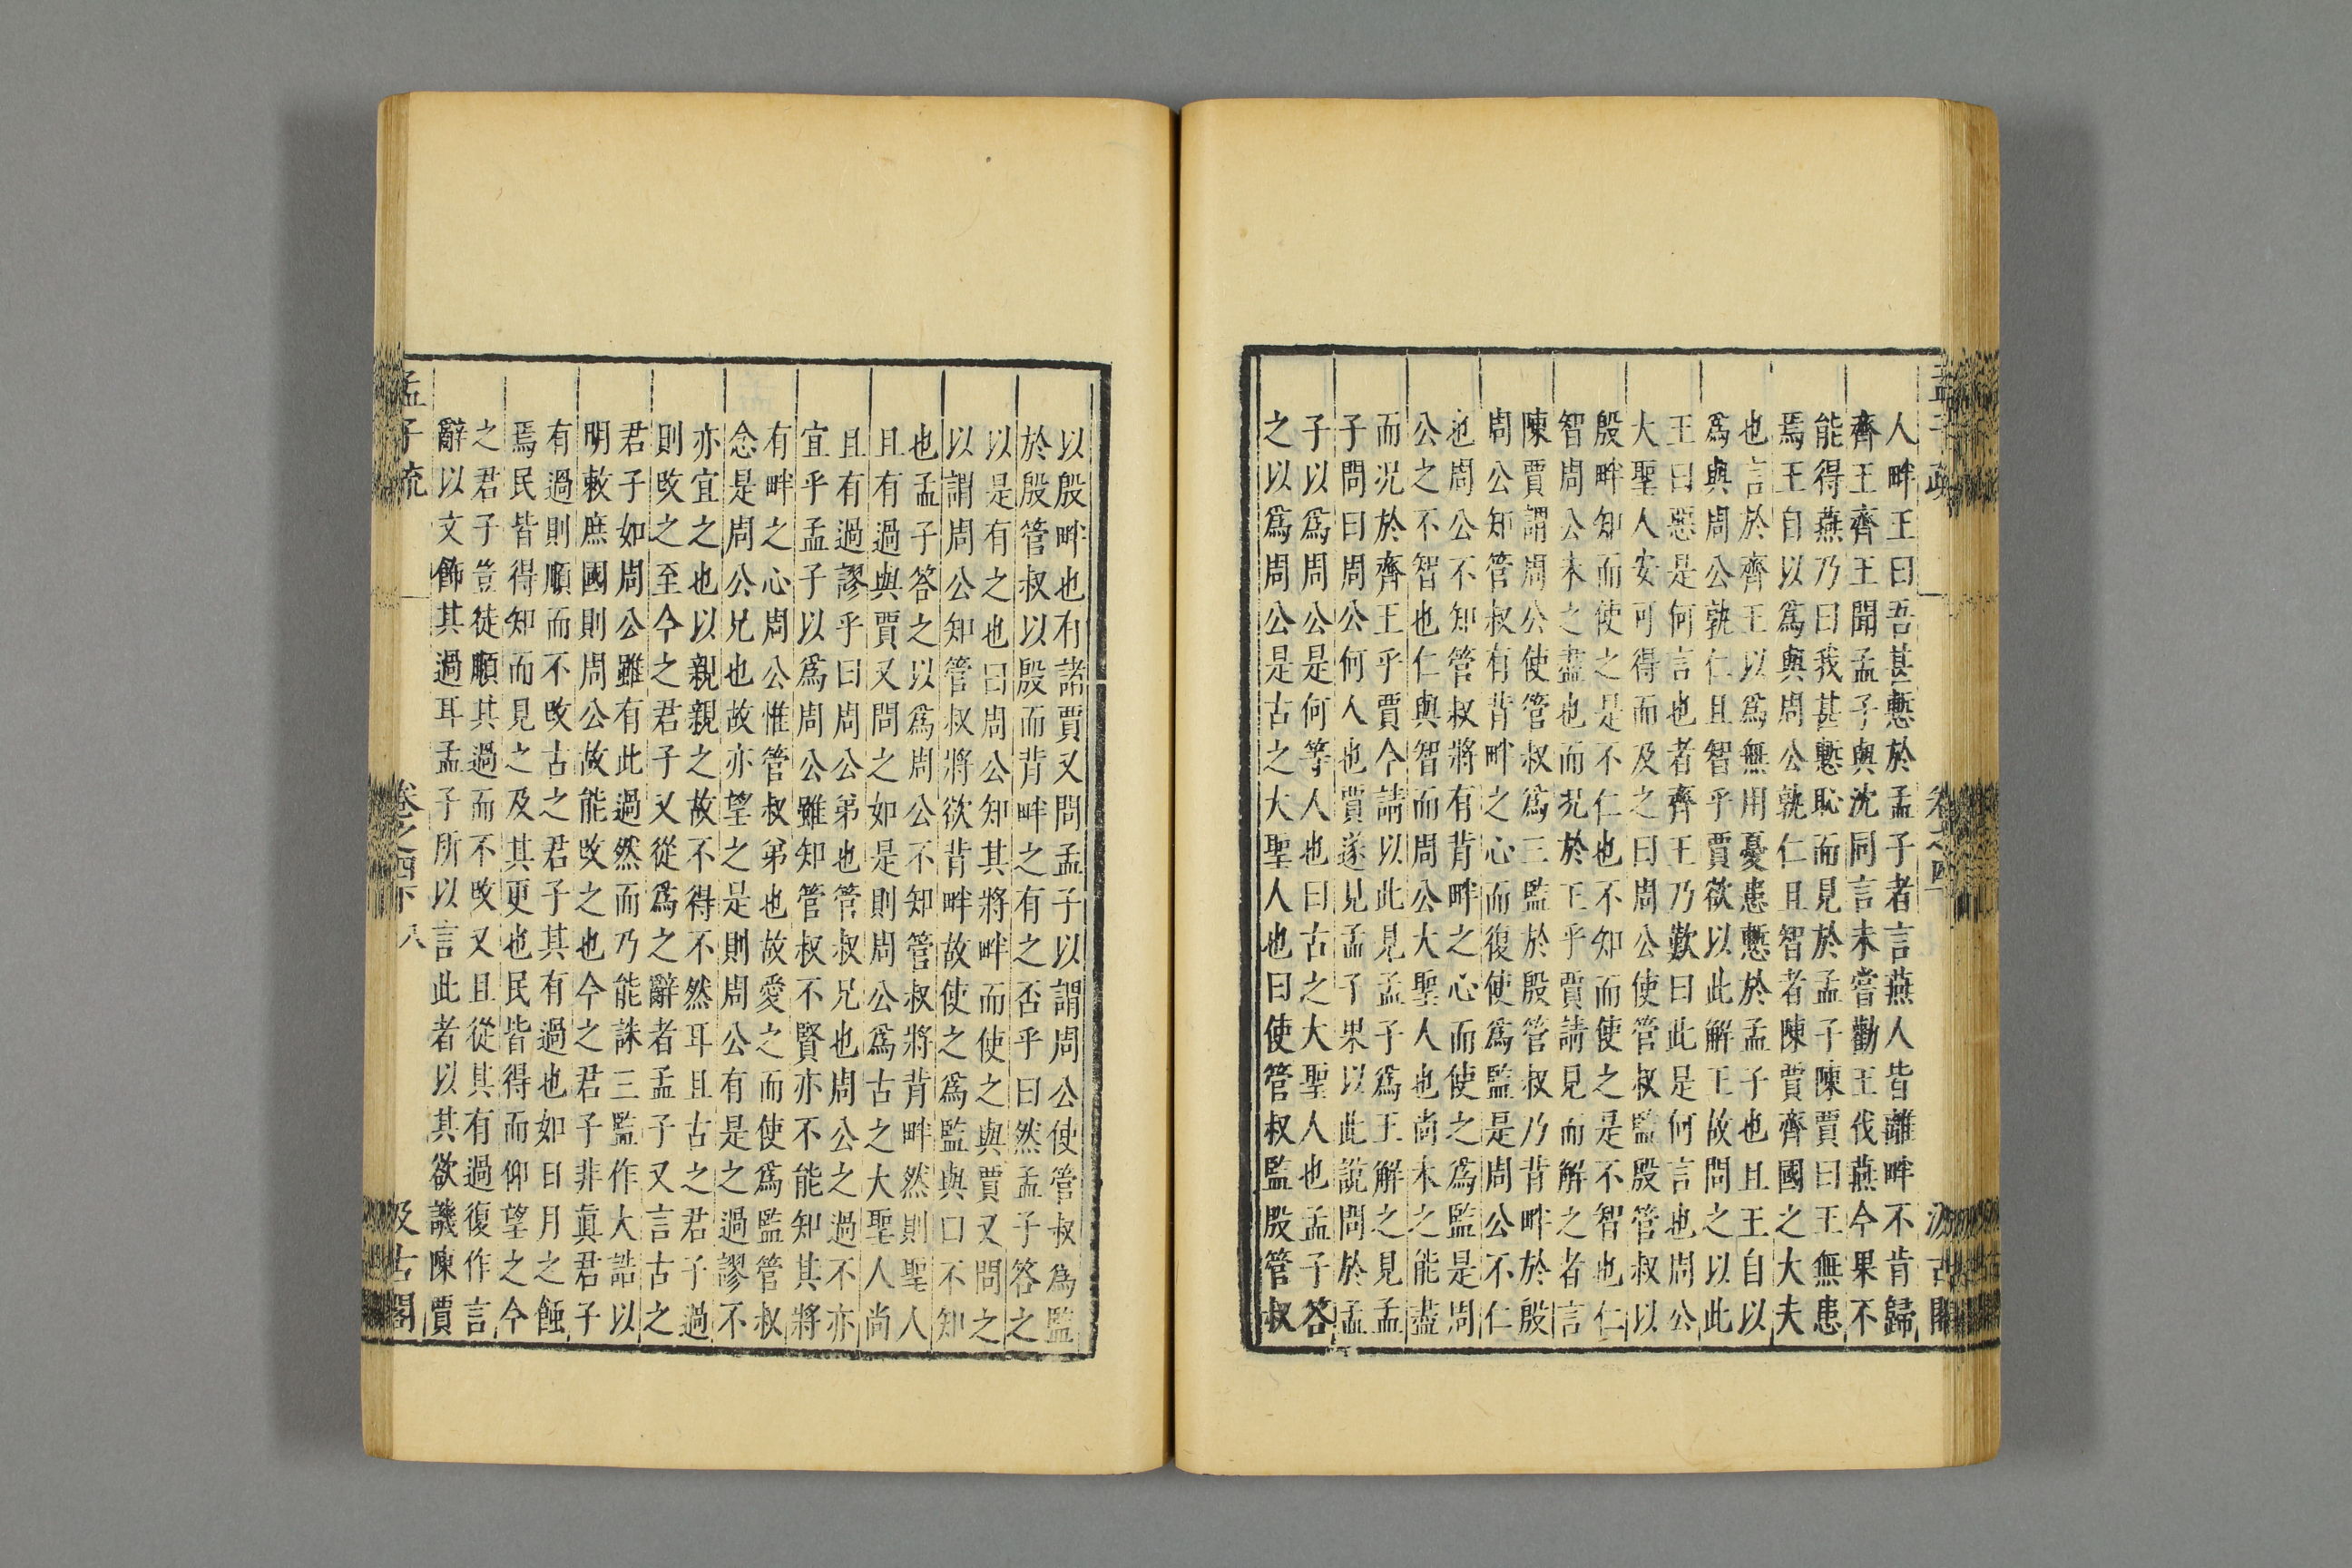 孟子疏 卷之四下 汲古閣
人畔王曰吾甚慙於孟子者言燕人皆離畔不肯歸
齊王齊王聞孟子與沈同言未嘗勸王伐燕今果不
能得燕乃曰我甚慙恥而見於孟子陳賈曰王無患
焉王自以爲與周公孰仁且智者陳賈齊國之大夫
也言於齊王以爲無用憂患慙於孟子也且王自以
爲與周公孰仁且智乎賈欲以此解王故問之以此
王曰惡是何言也者齊王乃歎曰此是何言也周公
大聖人安可得而及之曰周公使管叔監殷管叔以
殷畔知而使之是不仁也不知而使之是不智也仁
智周公未之盡也而況於王乎賈請見而解之者言
陳賈謂周公使管叔爲三監於殷管叔乃背畔於殷
周公知管叔有背畔之心而復使爲監是周公不仁
也周公不知管叔將有背畔之心而使之爲監是周
公之不智也仁與智而周公大聖人也尚未之能盡
而况於齊王乎賈今請以此見孟子爲王解之見孟
子問曰周公何人也賈遂見孟子果以此說問於孟
子以爲周公是何等人也曰古之大聖人也孟子答
之以爲周公是古之大聖人也曰使管叔監殷管叔
以殷畔也有諸賈又問孟子以謂周公使管叔爲監
於殷管叔以殷而背畔之有之否乎曰然孟子答之
以是有之也曰周公知其將畔而使之與賈又問之
以謂周公知管叔將欲背畔故使之爲監與曰不知
也孟子答之以爲周公不知管叔將背畔然則聖人
且有過與賈又問之如是則周公爲古之大聖人尚
且有過謬乎曰周公弟也管叔兄也周公之過不亦
宜乎孟子以爲周公雖知管叔不賢亦不能知其將
有畔之心周公惟管叔弟也故愛之而使爲監管叔
念是周公兄也故亦望之是則周公有是之過謬不
亦宜之也以親親之故不得不然耳且古之君子過
則改之至今之君子又從爲之辭者孟子又言古之
君子如周公雖有此過然而乃能誅三監作大誥以
明敕庶國則周公故能改之也今之君子非眞君子
有過則順而不改古之君子其有過也如日月之蝕
焉民皆得知而見之及其更也民皆得而仰望之今
之君子豈徒順其過而不改又且從其有過復作言
辭以文飾其過耳孟子所以言此者以其欲譏陳賈
孟子疏 卷之四下 八 汲古閣